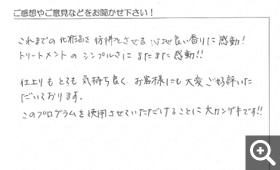 ご感想やご意見などをお聞かせ下さい!
これまでの化粧品を彷彿とさせる心地良い香りに感動!
トリートメントのシンプルさにまたまた感動!!
仕上りもとても気持ち良く お客様にも大変ご好評いた
だいております。
このプログラムを使用させていただけることに大カンゲキです!!